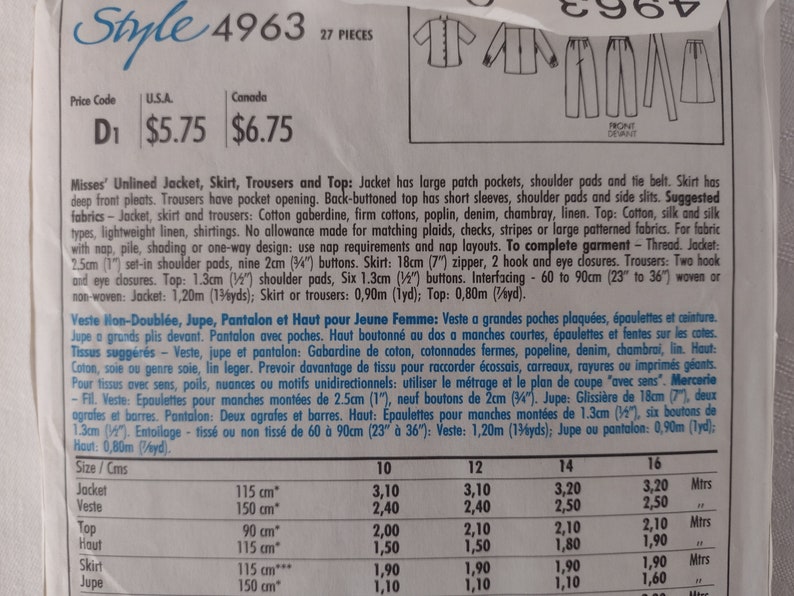 4963
Style 4963 27 PIECES
Price Code U.S.A. Canada
D1 $5.75 $6.75
FRONT
DEVANT
Misses' Unlined Jacket, Skirt, Trousers and Top: Jacket has large patch pockets, shoulder pads and tie belt. Skirt has
deep front pleats. Trousers have pocket opening. Back-buttoned top has short sleeves, shoulder pads and side slits. Suggested
fabrics – Jacket, skirt and trousers: Cotton gaberdine, firm cottons, poplin, denim, chambray, linen. Top: Cotton, silk and silk
types, lightweight linen, shirtings. No allowance made for matching plaids, checks, stripes or large patterned fabrics. For fabric
with nap, pile, shading or one-way design: use nap requirements and nap layouts. To complete garment – Thread. Jacket:
2.5cm (1") set-in shoulder pads, nine 2cm (¾") buttons. Skirt: 18cm (7") zipper, 2 hook and eye closures. Trousers: Two hook
and eye closures. Top: 1.3cm (½") shoulder pads, Six 1.3cm (½") buttons. Interfacing - 60 to 90cm (23" to 36") woven or
non-woven: Jacket: 1,20m (1⅜yds); Skirt or trousers: 0,90m (1yd); Top: 0,80m (⅞yd).
Veste Non-Doublée, Jupe, Pantalon et Haut pour Jeune Femme: Veste a grandes poches plaquées, épaulettes et ceinture.
Jupe a grands plis devant. Pantalon avec poches. Haut boutonné au dos a manches courtes, épaulettes et fentes sur les cotes.
Tissus suggérés – Veste, jupe et pantalon: Gabardine de coton, cotonnades fermes, popeline, denim, chambrai, lin. Haut:
Coton, soie ou genre soie, lin leger. Prevoir davantage de tissu pour raccorder écossais, carreaux, rayures ou imprimés géants.
Pour tissus avec sens, poils, nuances ou motifs unidirectionnels: utiliser le métrage et le plan de coupe "avec sens". Mercerie
– Fil. Veste: Epaulettes pour manches montées de 2.5cm (1"), neuf boutons de 2cm (¾"). Jupe: Glissière de 18cm (7"), deux
agrafes et barres. Pantalon: Deux agrafes et barres. Haut: Épaulettes pour manches montées de 1.3cm (½"), six boutons de
1.3cm (½"). Entoilage - tissé ou non tissé de 60 à 90cm (23" à 36"): Veste: 1,20m (1⅜yds); Jupe ou pantalon: 0,90m (1yd);
Haut: 0,80m (⅞yd).
Size / Cms 10 12 14 16
Jacket 115 cm* 3,10 3,10 3,20 3,20 Mtrs
Veste 150 cm* 2,40 2,40 2,50 2,50 "
Top 90 cm* 2,00 2,10 2,10 2,10 Mtrs
Haut 115 cm* 1,50 1,50 1,80 1,90 "
Skirt 115 cm*** 1,90 1,90 1,90 1,90 Mtrs
Jupe 150 cm* 1,10 1,10 1,10 1,60 "